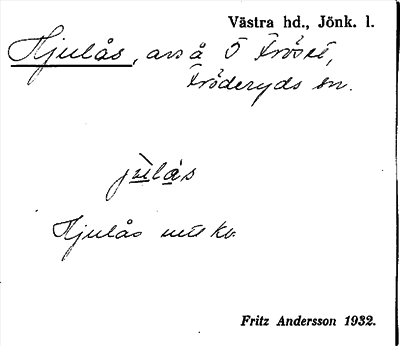 Västra hd., Jönk. l.
Hjulås, avs å 5 Fröset,
Fröderyds sn.
jùlás
Hjulås utt kv.
Fritz Andersson 1932.